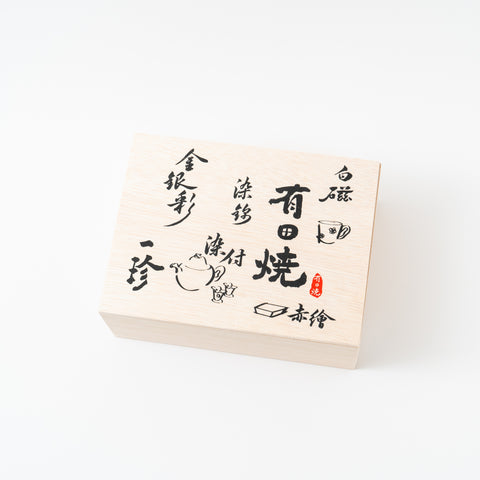 白磁
有田焼
有田焼
赤繪
染錦
染付
金銀彩
一珍